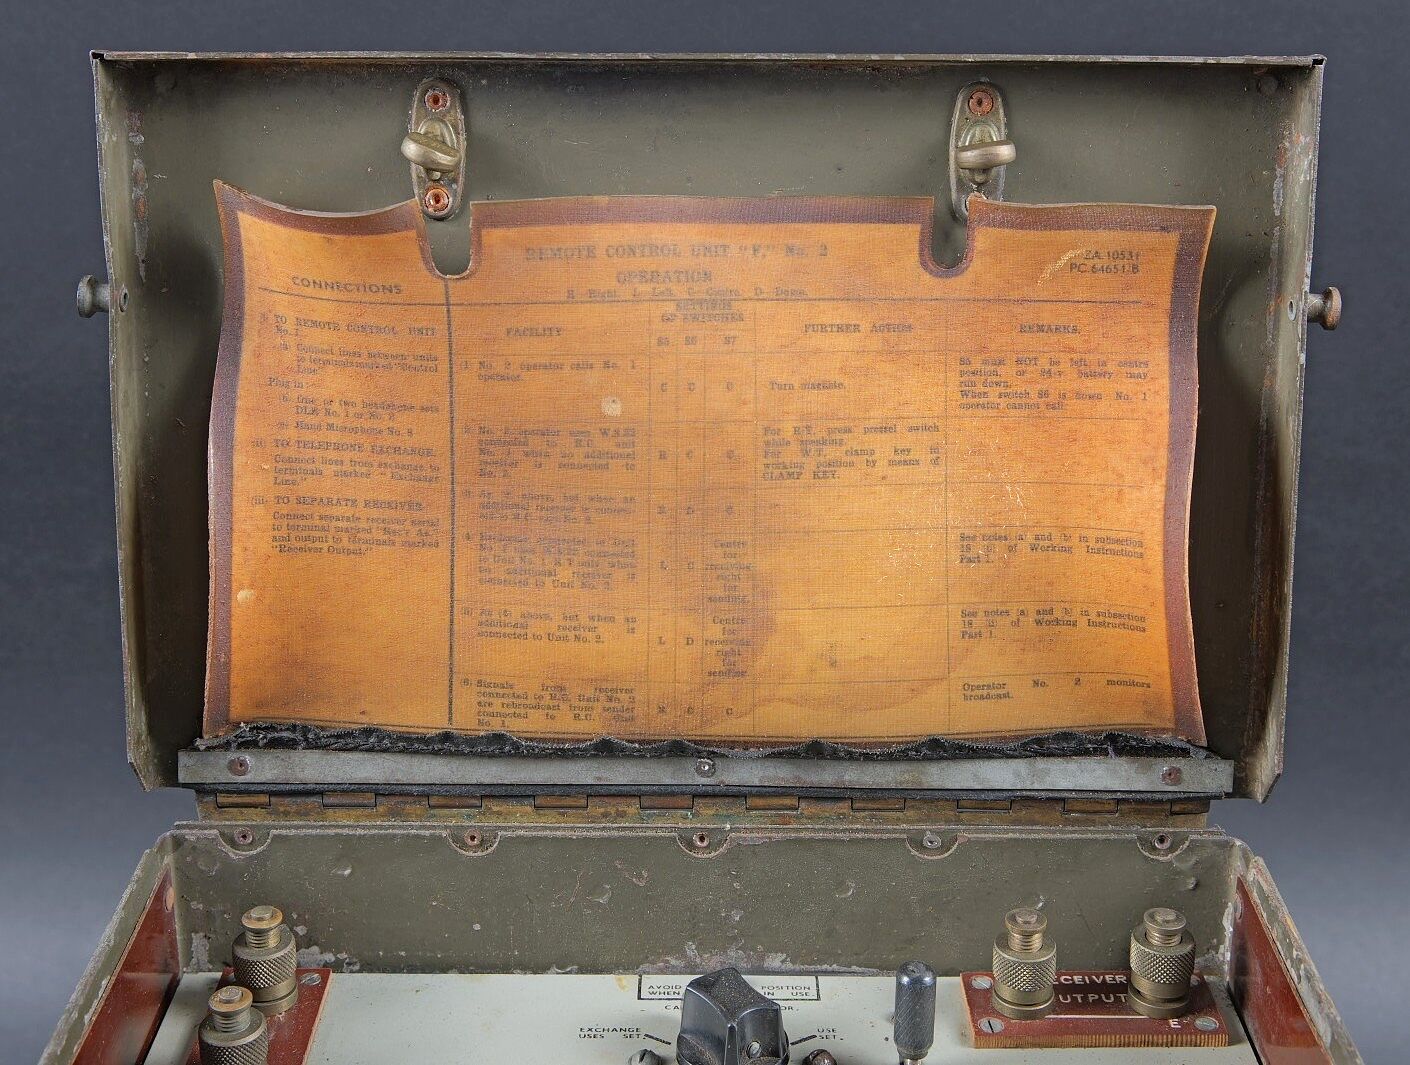 REMOTE CONTROL UNIT "F," No. 2
OPERATION
R Right. L Left. C Centre. D Down.
ZA.10531
PC 64651/B
CONNECTIONS
TO REMOTE CONTROL UNIT
No. 1
Connect lines between units
to terminals marked "Control
Line"
Plug in:
One or two headphone sets
DLR No. 1 or No. 2
Hand Microphone No. 8
(ii) TO TELEPHONE EXCHANGE.
Connect lines from exchange to
terminals marked "Exchange
Line."
(iii) TO SEPARATE RECEIVER.
Connect separate receiver aerial
to terminal marked "Rec'r Ae."
and output to terminals marked
"Receiver Output."
FACILITY
SETTINGS
OF SWITCHES
S5 S6 S7
FURTHER ACTION
REMARKS.
No. 2 operator calls No. 1
operator.
C C C
Turn magneto.
S5 must NOT be left in centre
position, or 24-v battery may
run down.
When switch S6 is down No. 1
operator cannot call.
No. 2 operator uses W.S.22
connected to R.C. Unit
No. 1 when no additional
receiver is connected to
R C C
For R.T. press pressel switch
while speaking.
For W.T. clamp key in
working position by means of
CLAMP KEY.
As above, but when an
additional receiver is
R D C
No. 1 uses connected
to Unit No. 1 R.T only when
no additional receiver is
connected to Unit No. 2.
L C
Centre
for
receiving
right
for
sending.
See notes (a) and (b) in subsection
18 of Working Instructions
Part 1.
As above, but when an
additional receiver is
connected to Unit No. 2.
L D
Centre
for
receiving
right
for
sending.
See notes (a) and (b) in subsection
18 of Working Instructions
Part 1.
(6) Signals from receiver
connected to R.C. Unit No. 2
are rebroadcast from sender
connected to R.C. Unit
No. 1.
R C C
Operator No. 2 monitors
broadcast.
AVOID POSITION
WHEN IN USE.
EXCHANGE
USES SET.
USE
SET.
RECEIVER
OUTPUT
E